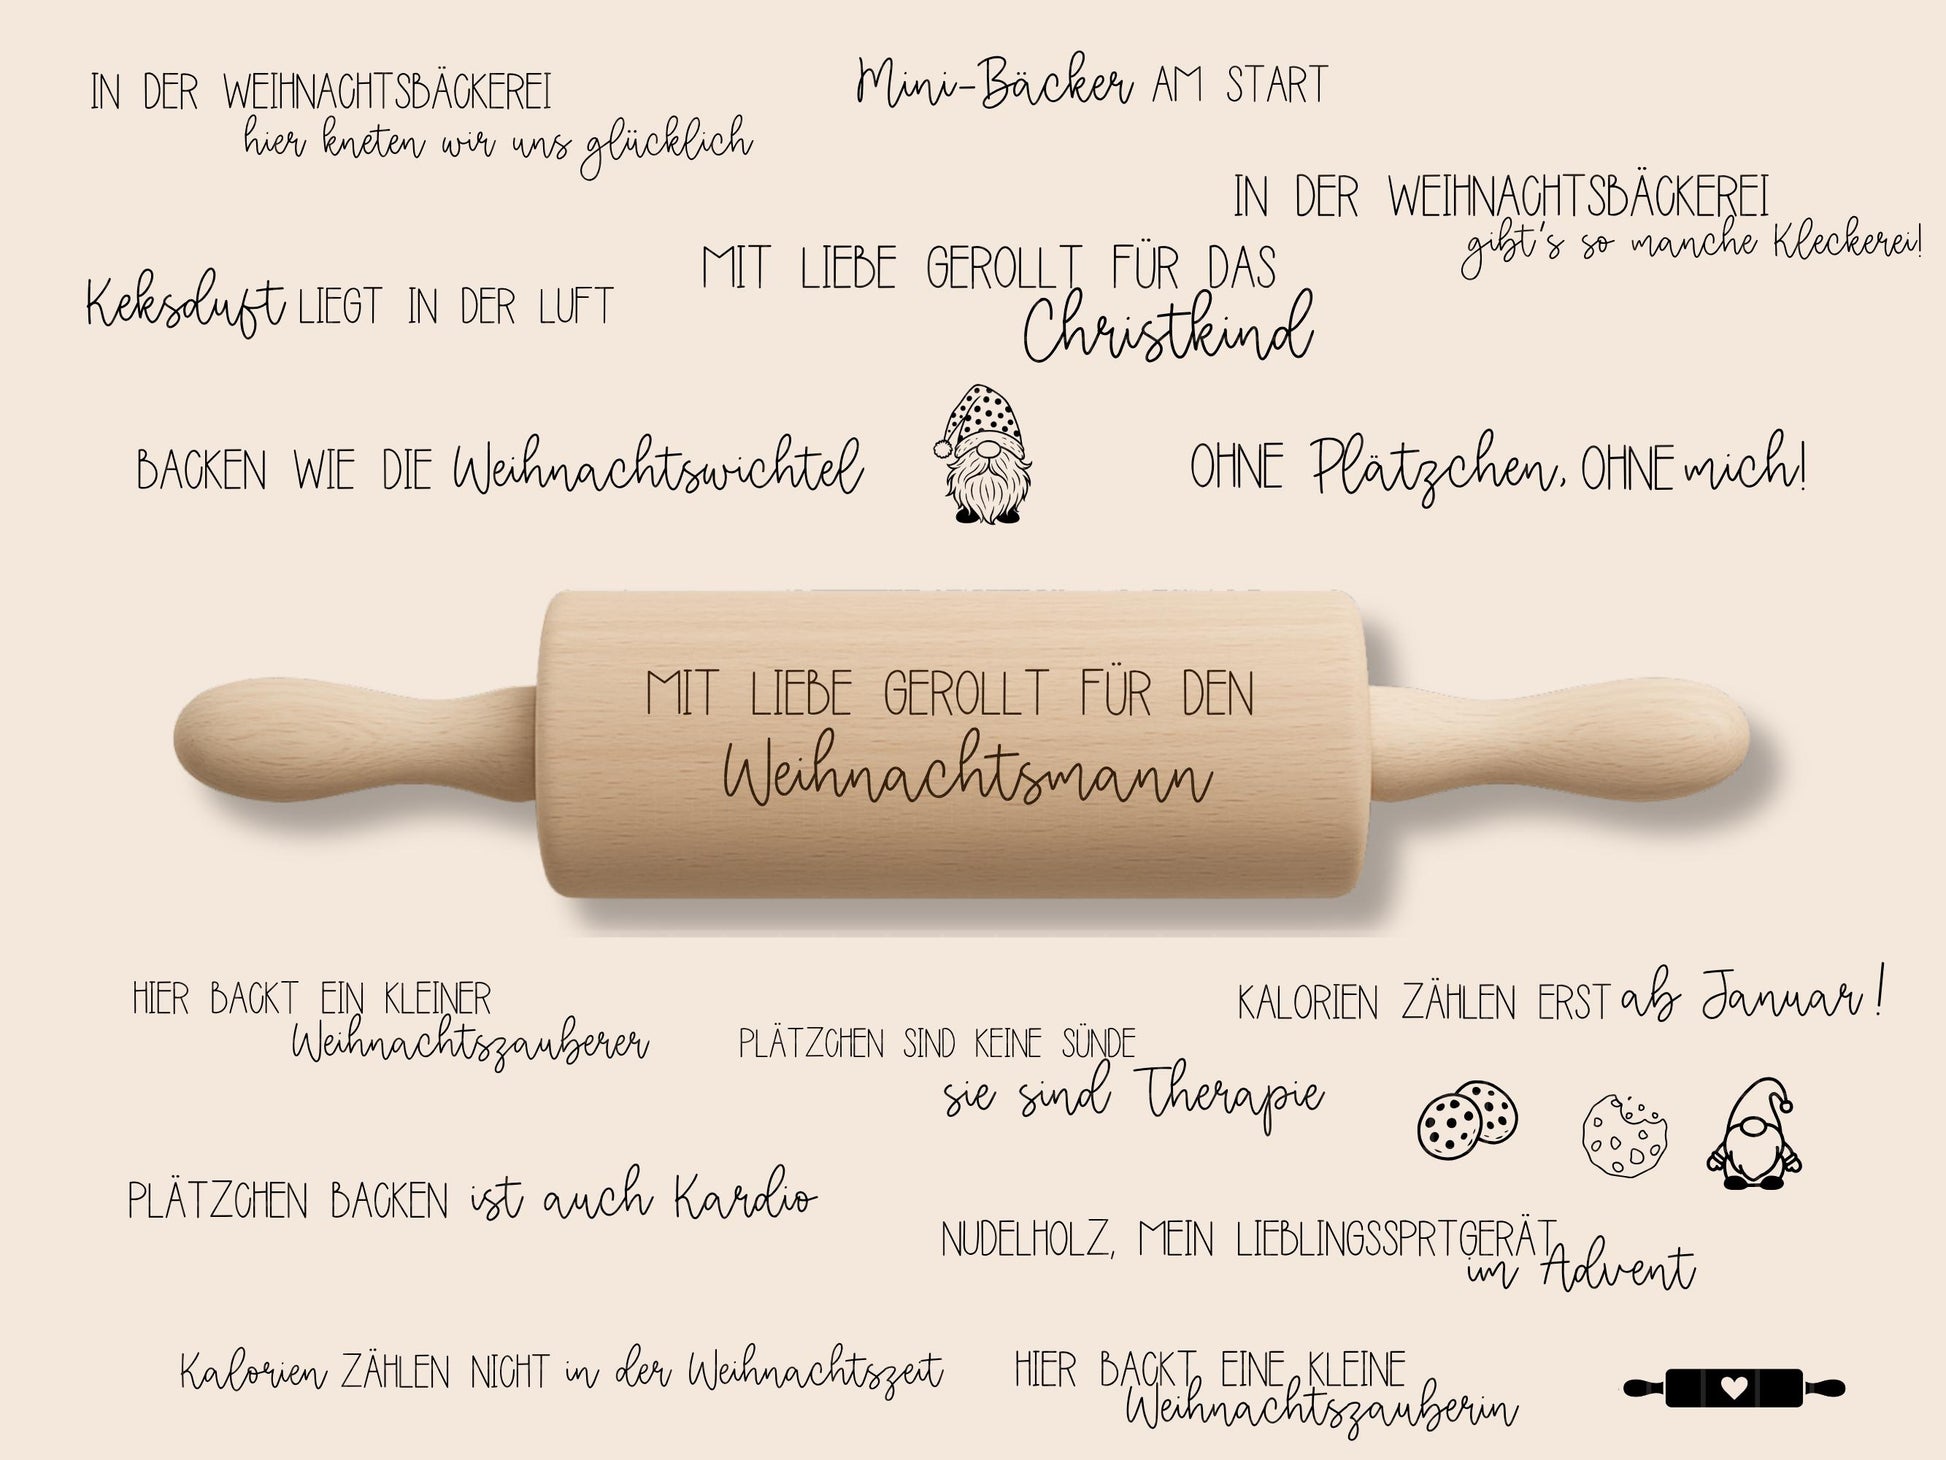 IN DER WEIHNACHTSBÄCKEREI
hier kneten wir uns glücklich
Mini-Bäcker AM START
IN DER WEIHNACHTSBÄCKEREI
gibt's so manche Kleckerei!
MIT LIEBE GEROLLT FÜR DAS
Christkind
Keksduft LIEGT IN DER LUFT
BACKEN WIE DIE Weihnachtswichtel
OHNE Plätzchen, OHNE mich!
MIT LIEBE GEROLLT FÜR DEN
Weihnachtsmann
HIER BACKT EIN KLEINER
Weihnachtszauberer
KALORIEN ZÄHLEN ERST ab Januar!
PLÄTZCHEN SIND KEINE SÜNDE
sie sind Therapie
PLÄTZCHEN BACKEN ist auch Kardio
NUDELHOLZ, MEIN LIEBLINGSSPRTGERÄT
im Advent
Kalorien ZÄHLEN NICHT in der Weihnachtszeit
HIER BACKT EINE KLEINE
Weihnachtszauberin